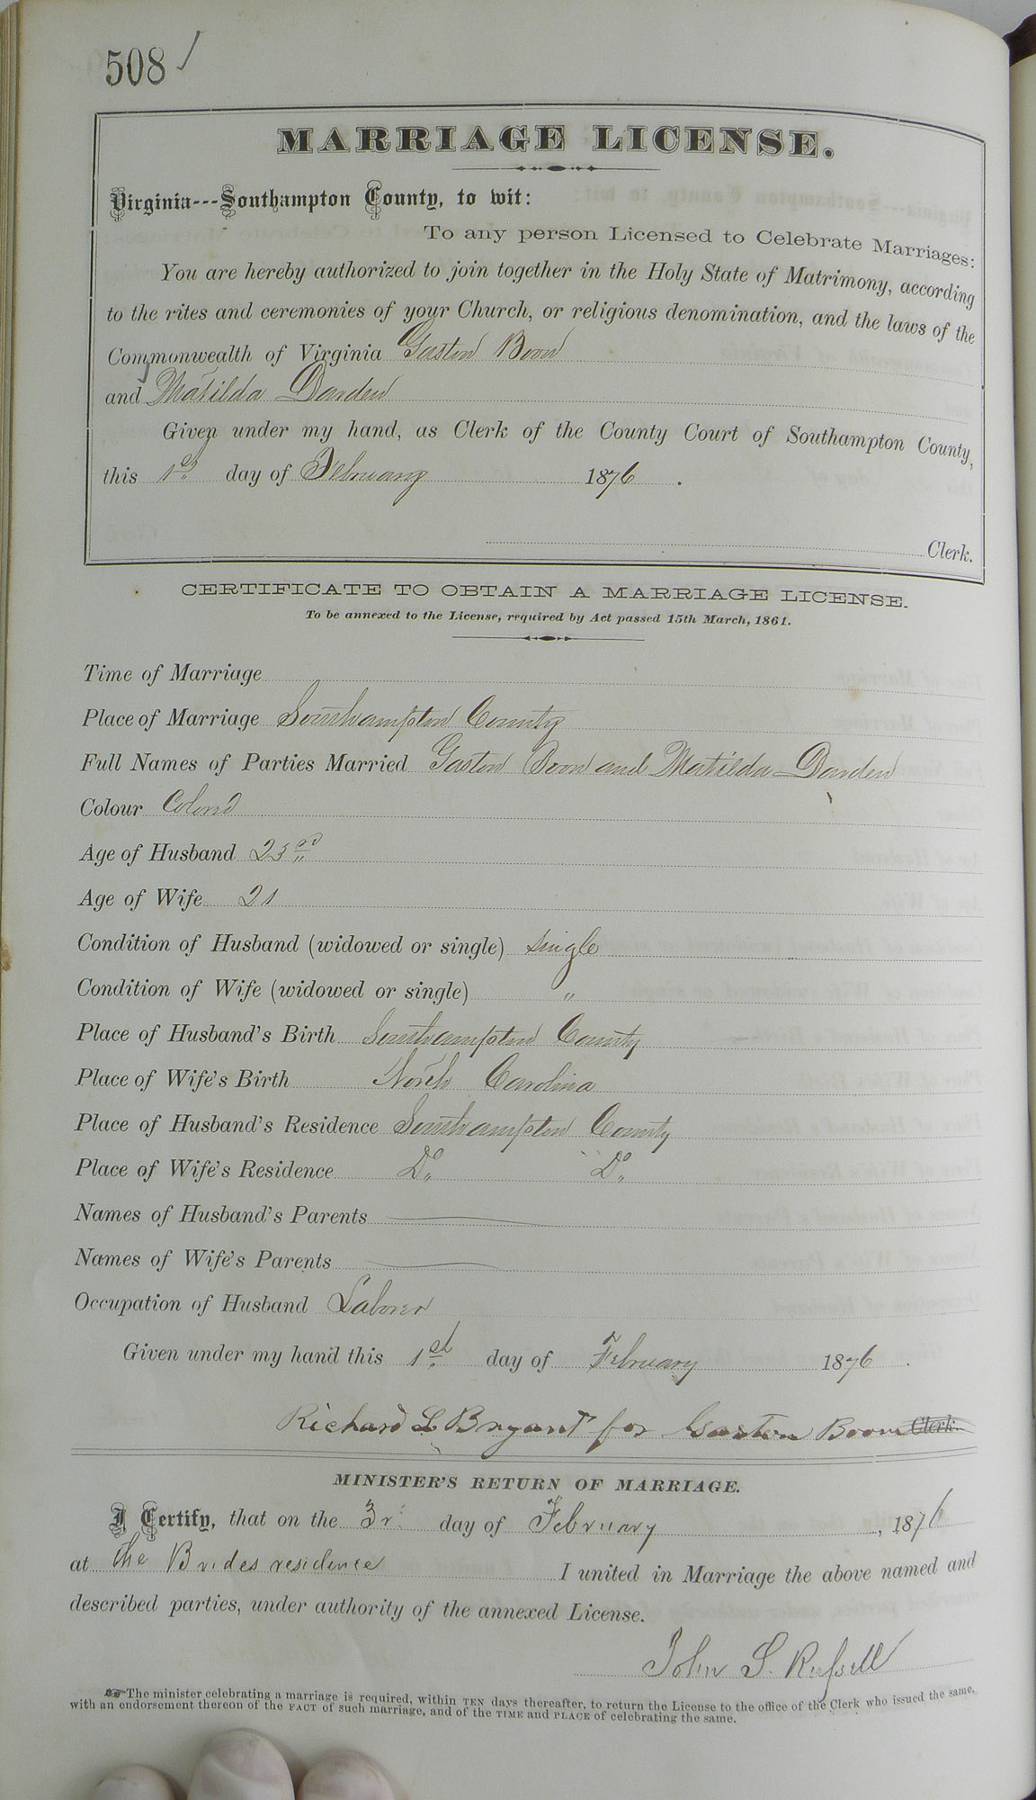 508
MARRIAGE LICENSE.
Virginia---Southampton County, to wit:
To any person Licensed to Celebrate Marriages:
You are hereby authorized to join together in the Holy State of Matrimony, according
to the rites and ceremonies of your Church, or religious denomination, and the laws of the
Commonwealth of Virginia Gaston Boon
and Matilda Darden
Given under my hand, as Clerk of the County Court of Southampton County,
this 1st day of February 1876.
Clerk.
CERTIFICATE TO OBTAIN A MARRIAGE LICENSE.
To be annexed to the License, required by Act passed 15th March, 1861.
Time of Marriage
Place of Marriage Southampton County
Full Names of Parties Married Gaston Boon and Matilda Darden
Colour Colored
Age of Husband 23
Age of Wife 21
Condition of Husband (widowed or single) single
Condition of Wife (widowed or single) "
Place of Husband's Birth Southampton County
Place of Wife's Birth North Carolina
Place of Husband's Residence Southampton County
Place of Wife's Residence Do. Do.
Names of Husband's Parents
Names of Wife's Parents
Occupation of Husband Laborer
Given under my hand this 1st day of February 1876.
Richard L Bryant for Gaston Boon Clerk.
MINISTER'S RETURN OF MARRIAGE.
I Certify, that on the 3r. day of February, 1876
at the Brides residence I united in Marriage the above named and
described parties, under authority of the annexed License.
John S. Russell
☞The minister celebrating a marriage is required, within TEN days thereafter, to return the License to the office of the Clerk who issued the same,
with an endorsement thereon of the FACT of such marriage, and of the TIME and PLACE of celebrating the same.